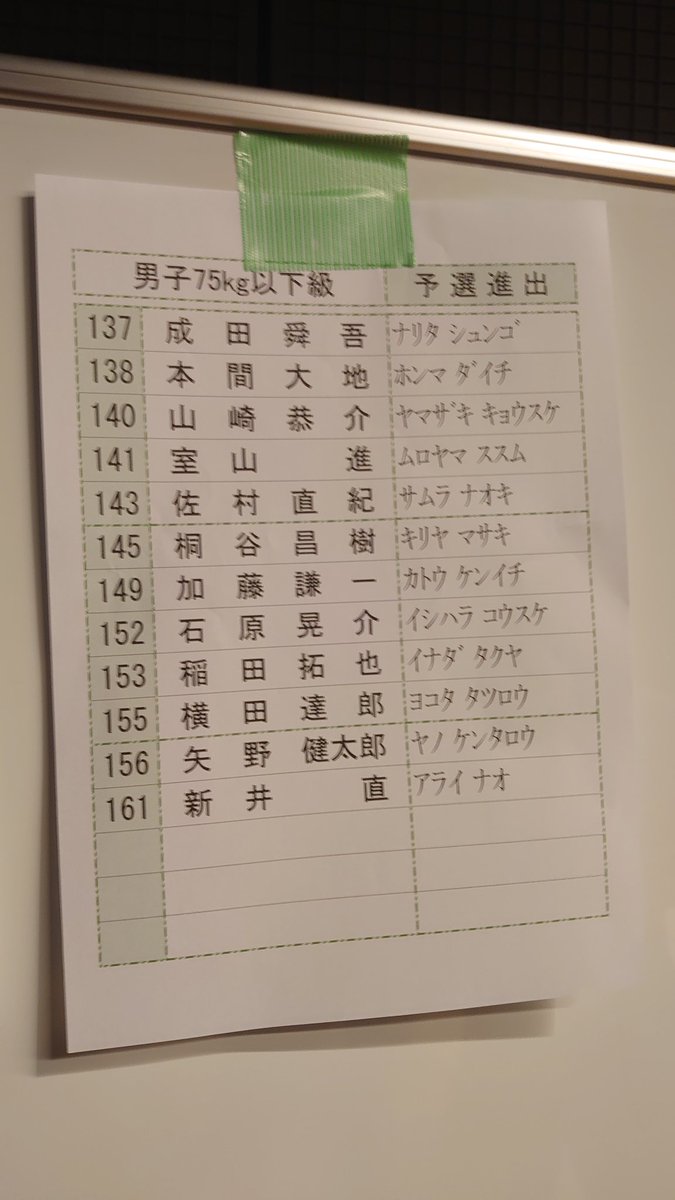 男子75kg以下級 予選進出
137 成田舜吾 ナリタ シュンゴ
138 本間大地 ホンマ ダイチ
140 山崎恭介 ヤマザキ キョウスケ
141 室山進 ムロヤマ ススム
143 佐村直紀 サムラ ナオキ
145 桐谷昌樹 キリヤ マサキ
149 加藤謙一 カトウ ケンイチ
152 石原晃介 イシハラ コウスケ
153 稲田拓也 イナダ タクヤ
155 横田達郎 ヨコタ タツロウ
156 矢野健太郎 ヤノ ケンタロウ
161 新井直 アライ ナオ